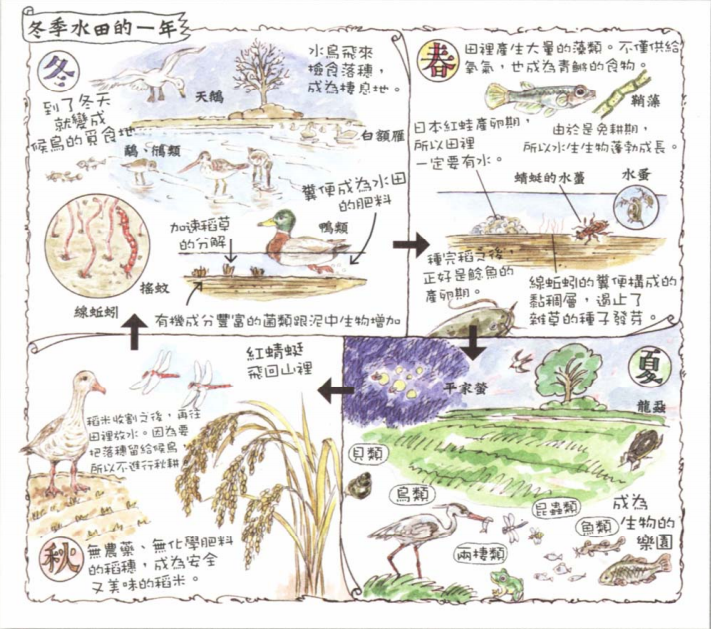 冬季水田的一年
冬
水鳥飛來
撿食落穗,
成為棲息地。
天鵝
到了冬天
就變成
候鳥的覓食地
白額雁
鷸、鴴類
糞便成為水田
的肥料
加速稻草
的分解
鴨類
搖蚊
線蚯蚓
有機成分豐富的菌類跟泥中生物增加
春
田裡產生大量的藻類。不僅供給
氧氣,也成為青鱂的食物。
鞘藻
日本紅蛙產卵期,
所以田裡
一定要有水。
由於是免耕期,
所以水生生物蓬勃成長。
蜻蜓的水蠆
水蚤
種完稻之後,
正好是鯰魚的
產卵期。
線蚯蚓的糞便構成的
黏稠層,遏止了
雜草的種子發芽。
夏
平家螢
龍蝨
貝類
鳥類
昆蟲類
魚類
兩棲類
成為
生物的
樂園
紅蜻蜓
飛回山裡
稻米收割之後,再往
田裡放水。因為要
把落穗留給候鳥,
所以不進行秋耕
秋
無農藥、無化學肥料
的稻穗,成為安全
又美味的稻米。